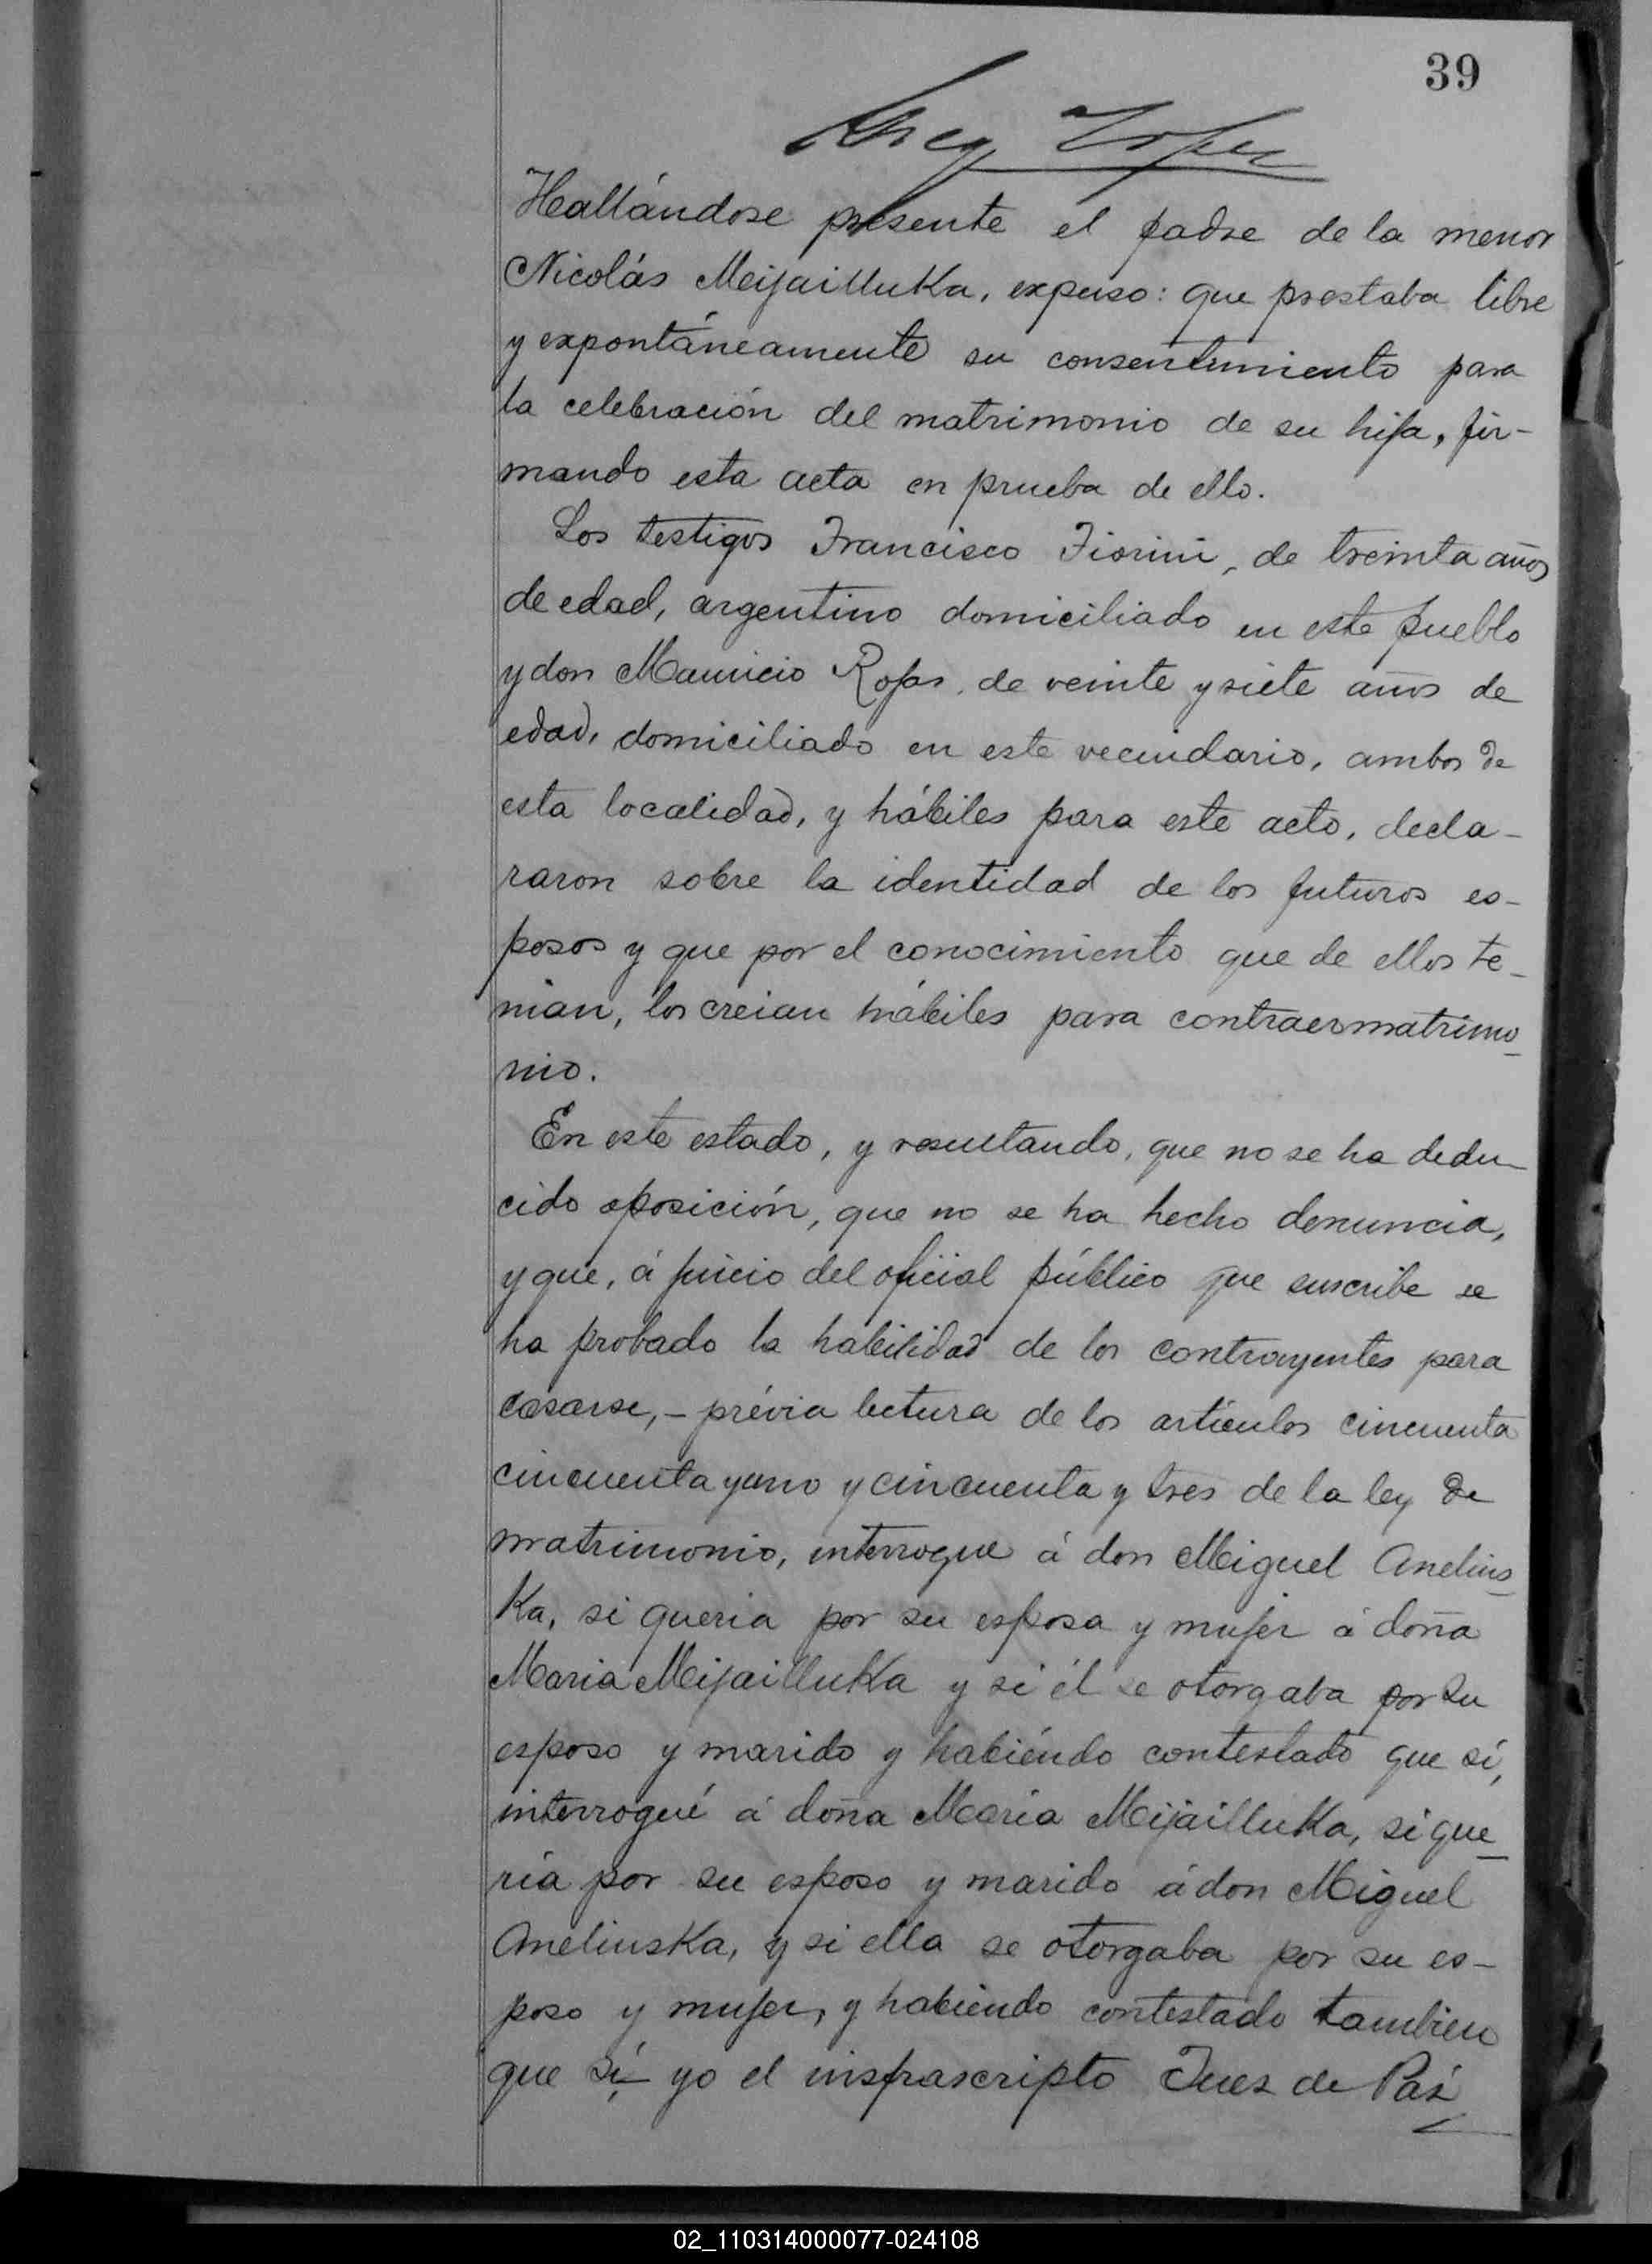 39
Greg Lopez
Hallándose presente el padre de la menor
Nicolás Meijailluka, expuso: que prestaba libre
y expontáneamente su consentimiento para
la celebración del matrimonio de su hija, fir-
mando esta acta en prueba de ello.
Los testigos Francisco Fiorini, de treinta años
de edad, argentino domiciliado en este pueblo
y don Mauricio Rojas, de veinte y siete años de
edad, domiciliado en este vecindario, ambos de
esta localidad, y hábiles para este acto, decla-
raron sobre la identidad de los futuros es-
posos y que por el conocimiento que de ellos te-
nian, los creian hábiles para contraer matrimo-
nio.
En este estado, y resultando, que no se ha dedu-
cido oposición, que no se ha hecho denuncia,
y que, á juicio del oficial público que suscribe se
ha probado la habilidad de los contrayentes para
casarse, - prévia lectura de los artículos cincuenta
cincuenta y uno y cincuenta y tres de la ley de
matrimonio, interrogue á don Miguel Anelins-
Ka, si queria por su esposa y mujer á doña
Maria Mijailluka y si él se otorgaba por su
esposo y marido y habiéndo contestado que sí,
interrogué á doña María Mijailluka, si que-
ría por su esposo y marido á don Miguel
Anelinska, y si ella se otorgaba por su es-
poso y mujer, y habiendo contestado tambien
que sí, yo el insfrascripto Juez de Paz
02_110314000077-024108